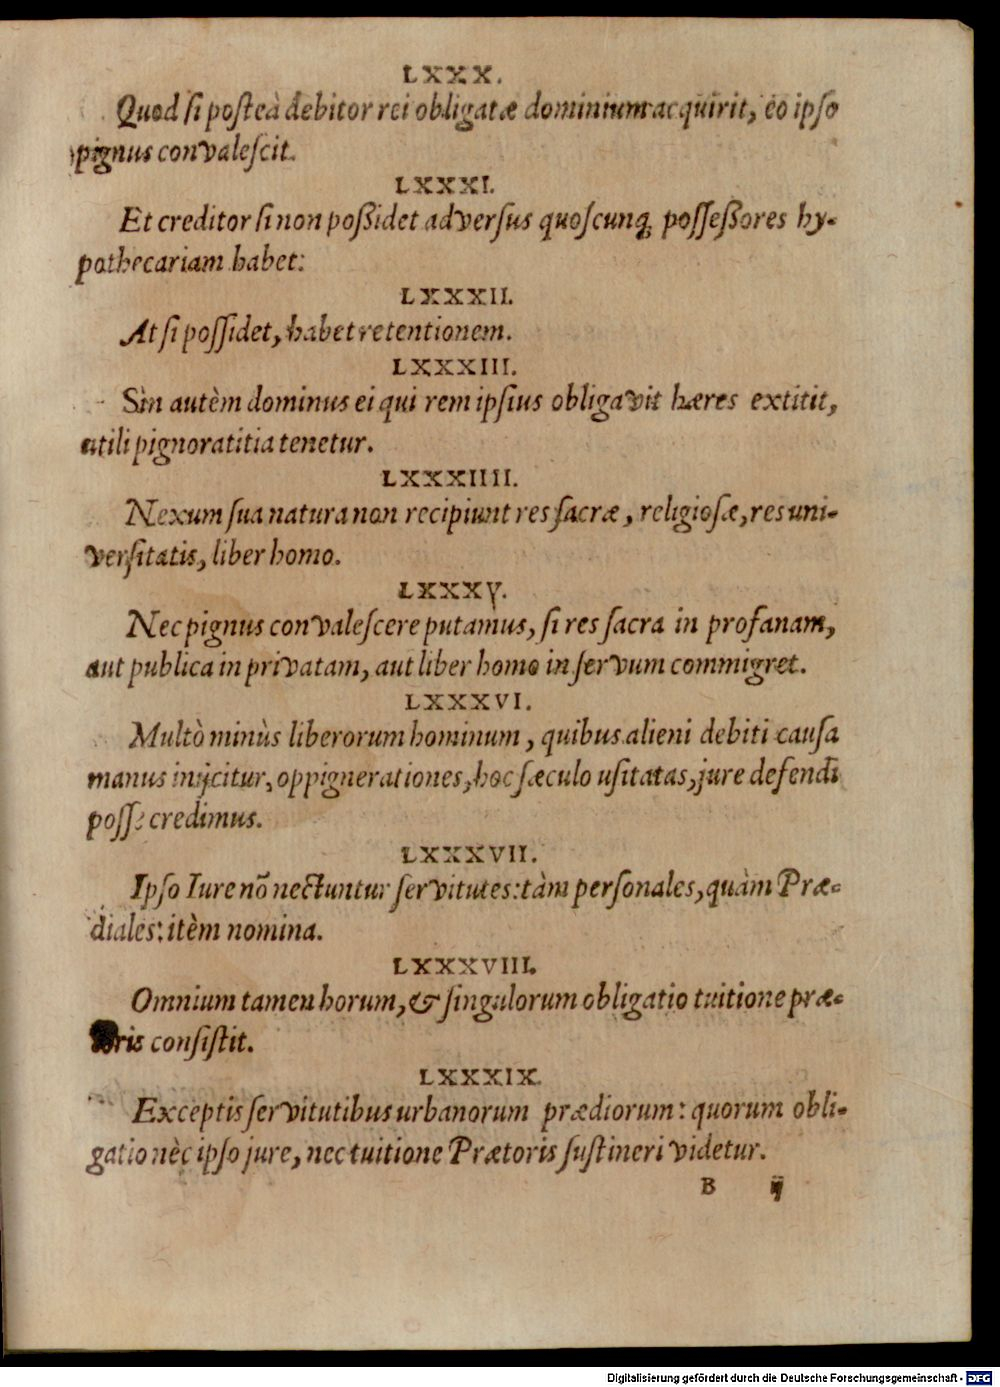 LXXX.
Quod si posteà debitor rei obligatæ dominium acquirit, eo ipso
pignus convalescit.
LXXXI.
Et creditor si non poßidet adversus quoscunq; possessores hy-
pothecariam habet:
LXXXII.
At si possidet, habet retentionem.
LXXXIII.
Sin autèm dominus ei qui rem ipsius obligavit hæres extitit,
utili pignoratitia tenetur.
LXXXIIII.
Nexum sua natura non recipiunt res sacræ, religiosæ, res uni-
versitatis, liber homo.
LXXXV.
Nec pignus convalescere putamus, si res sacra in profanam,
aut publica in privatam, aut liber homo in servum commigret.
LXXXVI.
Multò minùs liberorum hominum, quibus alieni debiti causa
manus inijcitur, oppignerationes, hoc sæculo usitatas, jure defendi
posse credimus.
LXXXVII.
Ipso Iure nõ nectuntur servitutes: tàm personales, quàm Præ-
diales: itèm nomina.
LXXXVIII.
Omnium tamen horum, & singulorum obligatio tuitione præ-
toris consistit.
LXXXIX.
Exceptis servitutibus urbanorum prædiorum: quorum obli-
gatio nèc ipso jure, nec tuitione Prætoris sustineri videtur.
B ij
Digitalisierung gefördert durch die Deutsche Forschungsgemeinschaft - DFG